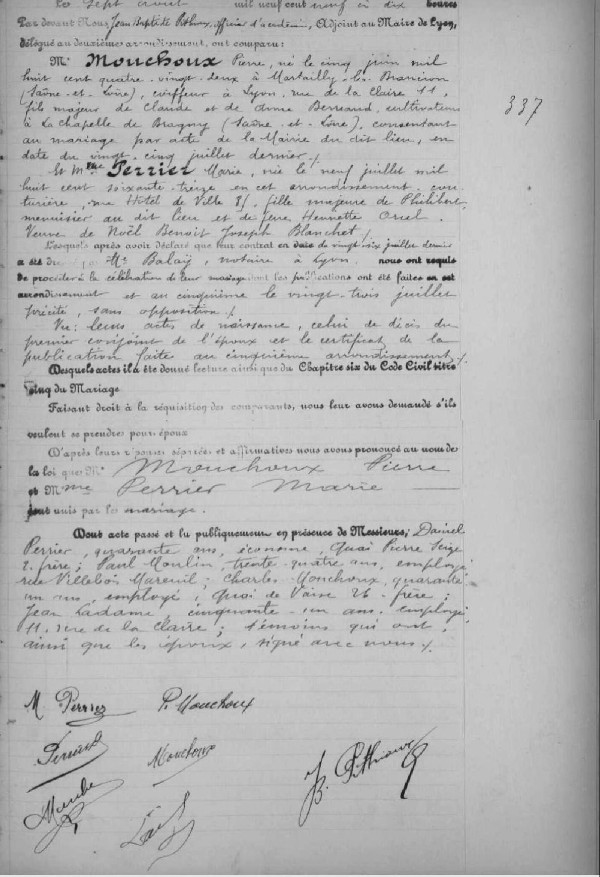 Le Sept août mil neuf cent neuf à dix heures
Par devant Nous Jean Baptiste Pithioux, officier d'académie, Adjoint au Maire de Lyon,
délégué au deuxième arrondissement, ont comparu:
Mr Mouchoux Pierre, né le cinq juin mil
huit cent quatre-vingt-deux à Martailly-les-Brancion
(Saône-et-Loire), coiffeur à Lyon, rue de la Claire 11,
fils majeur de Claude et de Anne Bernaud, cultivateurs
à La Chapelle de Bragny (Saône-et-Loire), consentant
au mariage par acte de la Mairie du dit lieu, en
date du vingt-cinq juillet dernier /.
337
Et Mme Perrier Marie, née le neuf juillet mil
huit cent soixante-treize en cet arrondissement, cou-
turière, rue Hôtel de Ville, fille majeure de Philibert,
menuisier au dit lieu et de feue Henriette
Veuve de Noël Benoit Joseph Blanchet /.
Lesquels après avoir déclaré que leur contrat en date du vingt six juillet dernier
a été Me Balaÿ, notaire à Lyon. nous ont requis
de procéder à la célébration de leur mariage dont les publications ont été faites en cet
arrondissement et au cinquième le vingt-trois juillet
précité, sans opposition /.
Vu: leurs actes de naissance, celui de décès du
premier conjoint de l'épouse et le certificat de la
publication faite au cinquième arrondissement /.
Desquels actes il a été donné lecture ainsi que du Chapitre six du Code Civil titre
cinq du Mariage
Faisant droit à la réquisition des comparants, nous leur avons demandé s'ils
veulent se prendre pour époux
D'après leurs réponses séparées et affirmatives nous avons prononcé au nom de
la loi que Mr Mouchoux Pierre
et Mme Perrier Marie
sont unis par le mariage.
Dont acte passé et lu publiquement en présence de Messieurs; Daniel
Perrier, quarante ans, économe, Quai Pierre Scize
2, frère; Paul Moulin, trente-quatre ans, employé
rue Villebois Mareuil; Charles Mouchoux, quarante
un ans, employé, Quai de Vaise 26, frère;
Jean Ladame, cinquante-un ans, employé,
11, rue de la Claire; témoins qui ont,
ainsi que les époux, signé avec nous /.
M Perrier P. Mouchoux
Perrier Mouchoux
JB. Pithioux